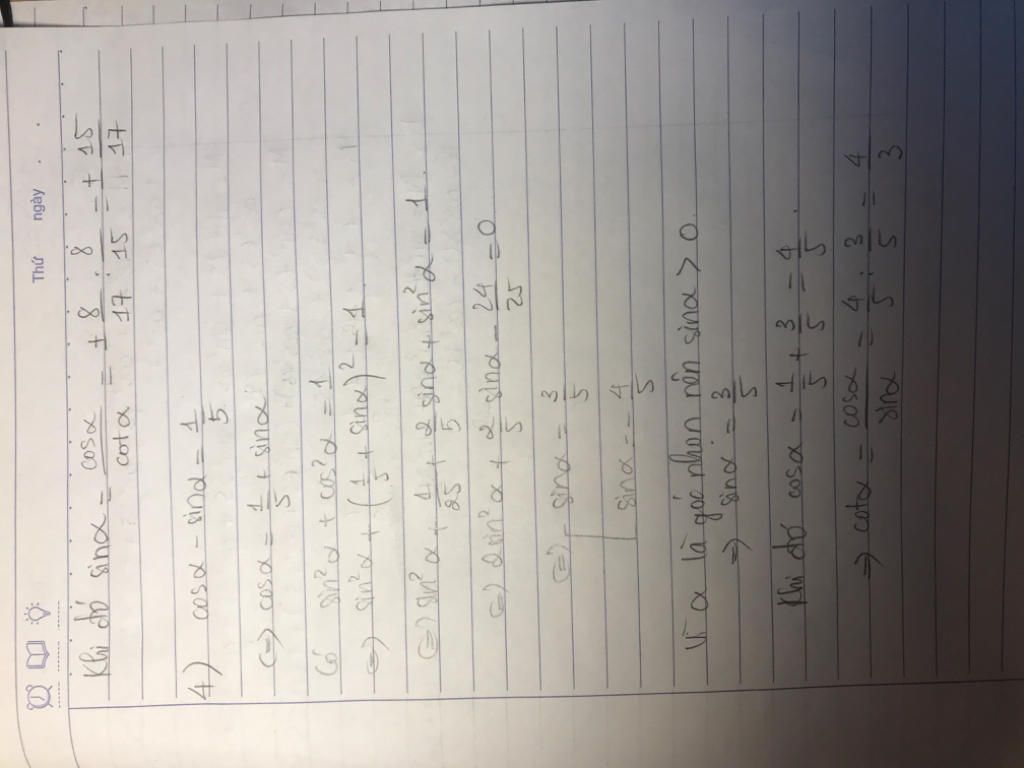 Thứ ngày
Khi đó sinα = cosα / cotα = ± 8/17 : 8/15 = ± 15/17
4) cosα - sinα = 1/5
(=) cosα = 1/5 + sinα
Có sin²α + cos²α = 1
=) sin²α + (1/5 + sinα)² = 1
(=) sin²α + 1/25 + 2/5 sinα + sin²α = 1
(=) 2sin²α + 2/5 sinα - 24/25 = 0
(=) [ sinα = 3/5
sinα = -4/5
Vì α là góc nhọn nên sinα > 0
=) sinα = 3/5
Khi đó cosα = 1/5 + 3/5 = 4/5.
=) cotα = cosα / sinα = 4/5 : 3/5 = 4/3